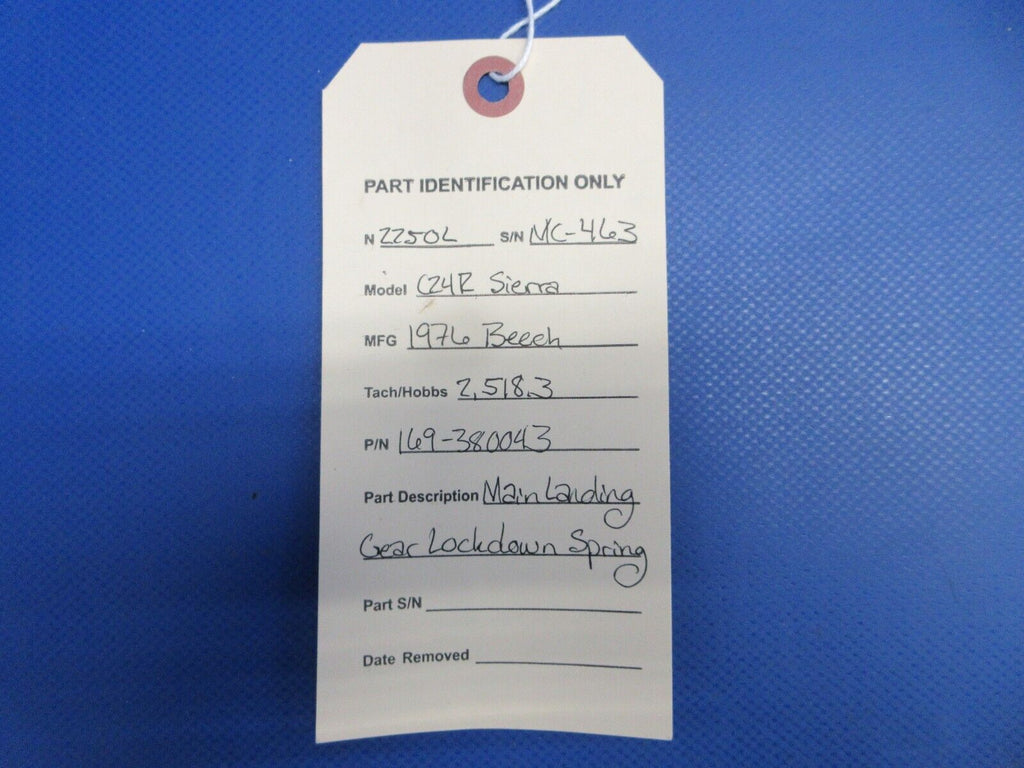 PART IDENTIFICATION ONLY
N 2250L S/N MC-463
Model C24R Sierra
MFG 1976 Beech
Tach/Hobbs 2,518.3
P/N 169-380043
Part Description Main Landing
Gear Lockdown Spring
Part S/N
Date Removed